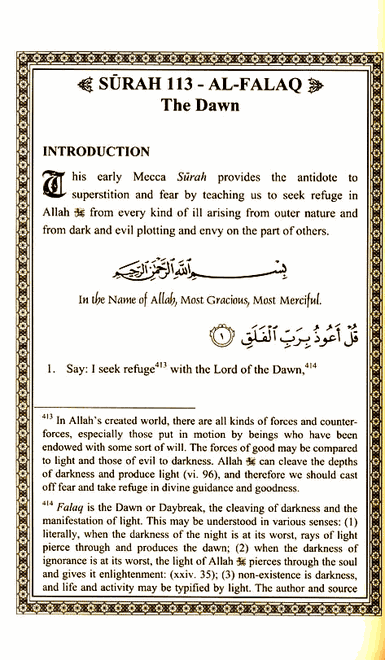 SŪRAH 113 - AL-FALAQ
The Dawn
INTRODUCTION
This early Mecca Sūrah provides the antidote to
superstition and fear by teaching us to seek refuge in
Allah ﷻ from every kind of ill arising from outer nature and
from dark and evil plotting and envy on the part of others.
بِسْمِ اللَّهِ الرَّحْمَٰنِ الرَّحِيمِ
In the Name of Allah, Most Gracious, Most Merciful.
قُلْ أَعُوذُ بِرَبِّ ٱلْفَلَقِ ١
1. Say: I seek refuge⁴¹³ with the Lord of the Dawn,⁴¹⁴
⁴¹³ In Allah's created world, there are all kinds of forces and counter-
forces, especially those put in motion by beings who have been
endowed with some sort of will. The forces of good may be compared
to light and those of evil to darkness. Allah ﷻ can cleave the depths
of darkness and produce light (vi. 96), and therefore we should cast
off fear and take refuge in divine guidance and goodness.
⁴¹⁴ Falaq is the Dawn or Daybreak, the cleaving of darkness and the
manifestation of light. This may be understood in various senses: (1)
literally, when the darkness of the night is at its worst, rays of light
pierce through and produces the dawn; (2) when the darkness of
ignorance is at its worst, the light of Allah ﷻ pierces through the soul
and gives it enlightenment: (xxiv. 35); (3) non-existence is darkness,
and life and activity may be typified by light. The author and source